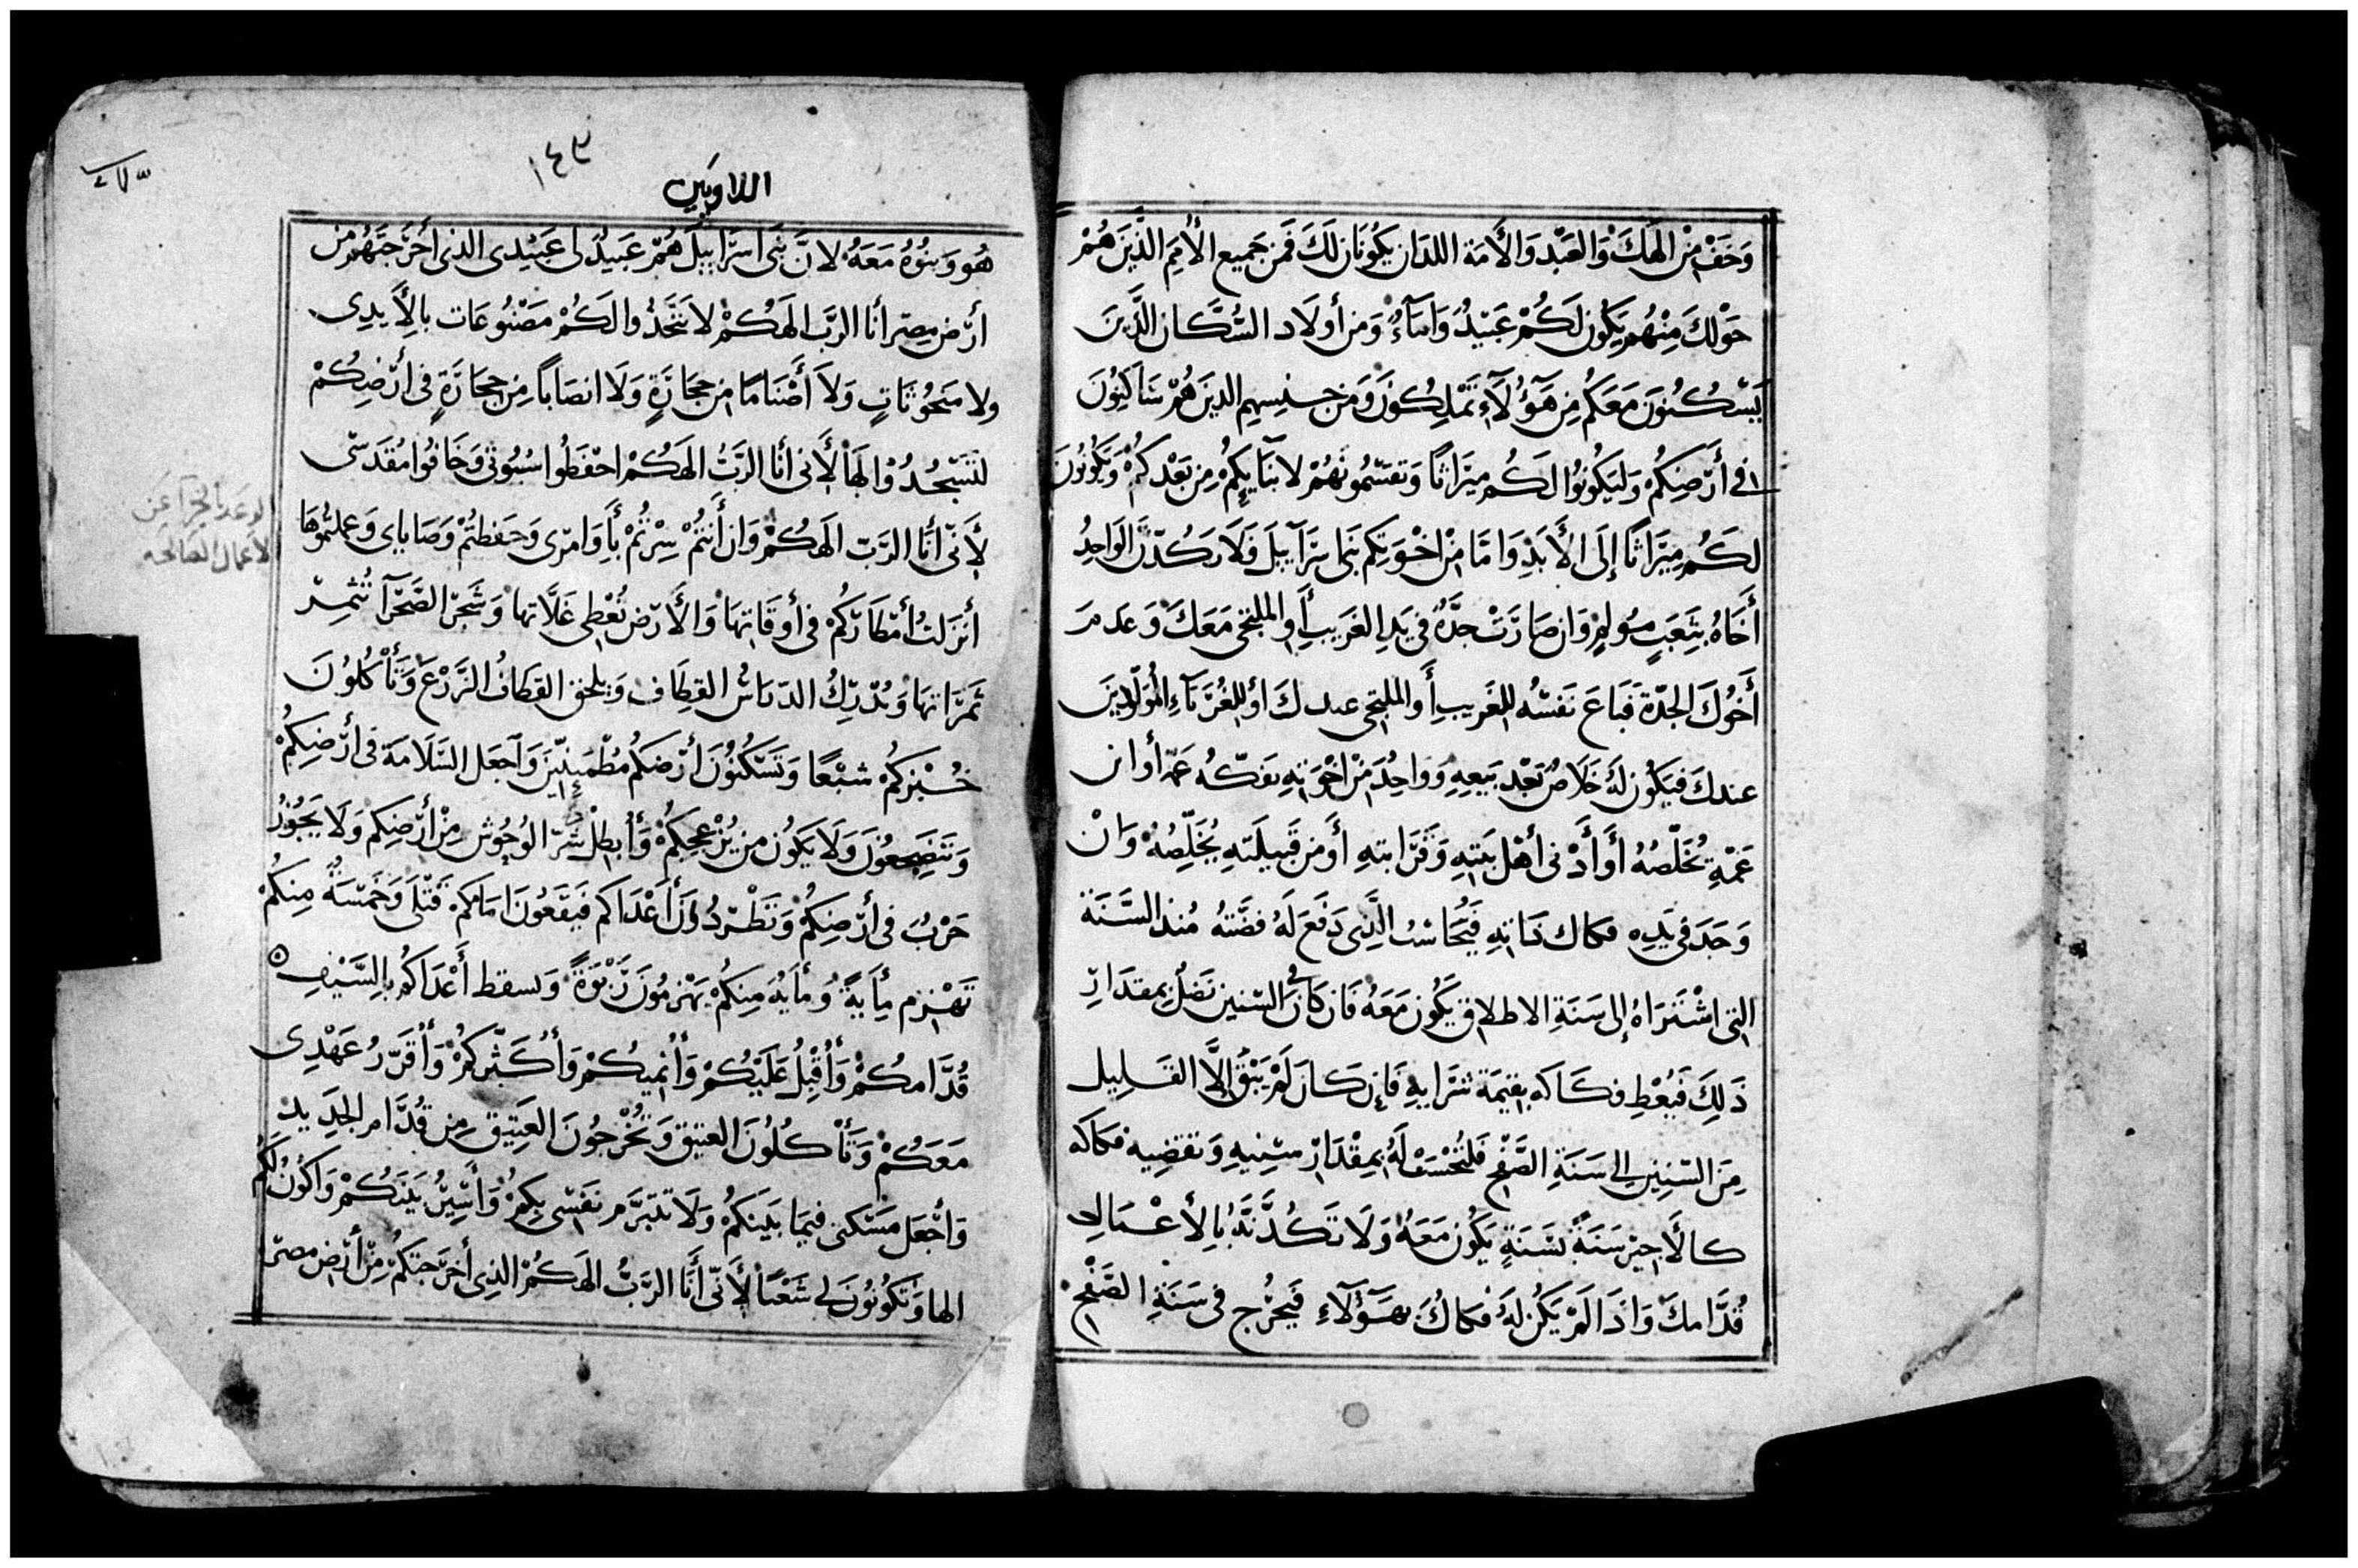 وَخَفْ مِنْ الَهَكَ وَالعَبْد وَالأَمَة اللدَان يَكُونَان لَكَ فَمَن جَمِيع الأُمَمِ الذَّيَن هُمْ
حَوْلكَ مِنْهُم يَكُون لَكُمْ عَبَيْدُ وَامَآءُ وَمن أولَاد السُّكَّان الَّذينَ
يَسْكُنوَن مَعَكُم مِن هَؤُلَآءِ تَمْلِكُونَ وَمَن جنسِهِم الدينَ هُمْ سَاكِنُونَ
فى أَرْضِكُمْ وَليَكُونُوا لَكُم مِيَرَاثاً وَتقسّمُونَهُمْ لابنَآيِكُمْ مِن بَعْدكُمْ وَيَكُونُونَ
لَكُم مِيَرَاثاً إِلَى الأَبَدِ وَامَّا مِنْ اخْوَتِكم بَنى اسرَآييلَ فَلَا يَكُدّنَّ الوَاحِدُ
أَخَاهُ بتَعَبٍ مُولِمٍ وَان صَارَتْ جدَّةُ فى يَدِ الغَرَيبِ أَوِ الملتجى مَعَكَ وَعَدمَ
أَخُوكَ الجدّة فَبَاعَ نَفسُه للغَريبِ أَو الملتجى عندكَ أو للغُرَبَآءِ المُوَلّودينَ
عندكَ فيَكُون لَهُ خَلَاصُ بَعْد بَيعِهِ وَوَاحِدُ مَنْ اخْوَتِهِ يفكّه عَمّه أوابن
عَمّهِ يُخَلّصُهُ أوأَدْنى أهْل بَيتِهِ وَقَرَابتهِ أَومن قَبيلَتهِ يُخَلِّصُهُ وَانْ
وَجَدَ فى يَدِه فكاك ذاتهِ فَيُحَاسب الَّذِى دَفَعَ لَهُ فضَّتهُ مُنذ السَّنَة
التى اشْتَرَاهُ إلى سَنَةِ الاطلاق يَكُون مَعَهُ فَان كَانَ فى السّنين فَضلُ بمقدَارِ
ذَلِكَ فَيُعْطِ فكَاكه بقيمَة شرَايهِ فَإن كَان لَمْ يَبْقَ إلَّا القَليل
مِنَ السّنِين الى سَنَةِ الصَّفْحِ فَلتُحْسَبْ لَهُ بمِقْدَارْ سنِنيهِ وَتقضِيه فكاكه
كالَأجيْر سَنَةً بسَنَةٍ يَكُون مَعَهُ وَلَا تَكُدَّنَّهُ بِالأعْمَال
قُدَّامكَ وَاذَالَمْ يَكُن لَهُ فكاكُ بهَؤُلآءِ فَيَخْرُج فى سَنَةِ الصَّفْحِ
١٤٣
اللاويين
هُو وَبنُوهُ مَعَهُ لانَّ بَنى اسرَاييلَ هُمْ عَبيدُ لى عَبيْدِى الذى اخْرَجتَهُم من
ارْض مِصر أنا الرَّبّ الهَكُمْ لاتَتَّخَذُوا لَكُمْ مَصْنُوعَات بالأَيدِى
ولا مَنحُوتَاتٍ وَلَا أَصْنَاماً من حِجَارَةٍ وَلَا انصَاباً مِن حِجَارَةٍ فى أرْضِكُمْ
لتَسْجُدُوْا لهَا لأَنى أنا الرَّبُّ الهَكُمْ احْفَظُوا سُبُوتى وَخَافُوا مُقدَسى
لأَنّى أنَا الرَّبّ الَهكُمْ وَان أَنتُمْ سِرْتُمْ بأَوَامرى وَحَفظتُمْ وَصَاياى وَعملتُمُوهَا
أنزَلتُ أمْطَارَكُمْ فى أوقَاتِهَا وَالأَرْض تُعْطِى غَلَّاتهَا وَشَجَر الصَّحْرَآ تُثمِر
ثَمرَاتهَا وَيُدْرِكُ الدّيَاسُ القِطَاف وَيَلحق القطَافُ الزَّرْعَ وَتَأْكُلُونَ
خُبْزكُمْ شبْعًا وَتَسْكُنُونَ أرْضَكُم مُطْمَينّينَ وَآجعَل السَّلَامَة فى أرْضِكُمْ
وَتَنضَجِعُونَ وَلَا يَكُون من يُزْعجكُمْ وَأبطلْ شَرّ الوُحُوش مِنْ أرْضِكُم وَلَا يَجُوزُ
حَرْبُ فى أرْضِكُمْ وَتَطْردُونَ أَعْدَاكم فَيَقَعُونَ امَامَكُمْ قَتْلَى وَخَمْسَةُ مِنكُمْ
تَهْزِم مأَيَةً وَمأَيَة مِنكُمْ يَهْزمُونَ رَبْوَةً وَيسقط أَعْدَاكُم بِالسَّيْفِ
قُدَّامكُمْ وَأَقْبلُ عَلَيْكُمْ وَأُنْميكُمْ وَأُكَثّركُمْ وَأُقَرّرُ عَهْدِى
مَعَكُمْ وَتَأْكُلُونَ العتيق وَتُخْرجُونَ العَتِيق مِن قُدَّام الجَدِيد
وَاجْعَل مَسْكنى فيمَا بَينَكُمْ وَلَا تتبَرَّم نَفسى بكِمُ وَأَسِيرُ بَينَكُمْ وَاكُونُ لَكُم
الها وَتَكُونُونَ لى شَعْباً لأَنّى أَنَا الرَّبُّ الهَكُمْ الَّذِى أخرَجتكُمْ مِنْ أَرْض مصر
الوعد بالجزآ عن
الأعمال الصالحه